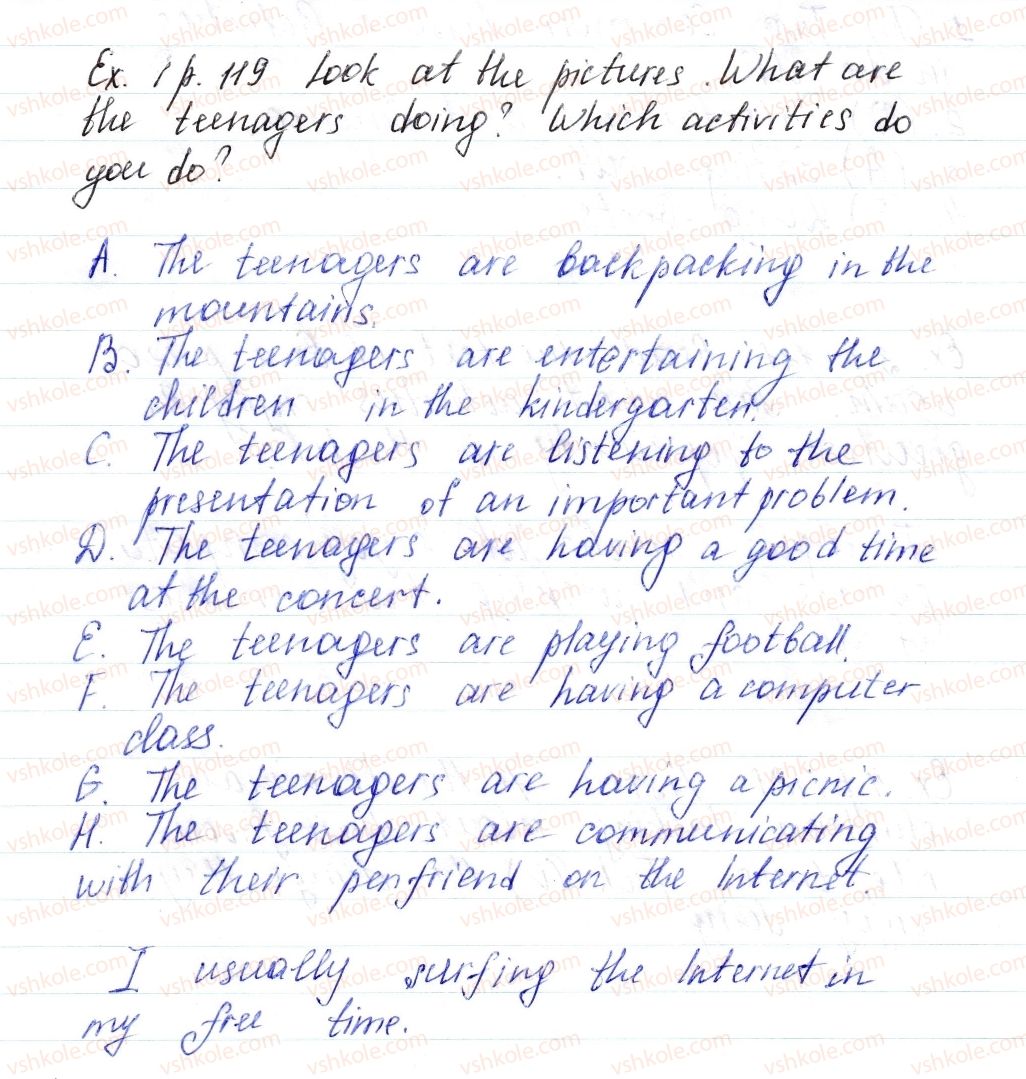 Ex. 1 p. 119 Look at the pictures. What are
the teenagers doing? Which activities do
you do?
A. The teenagers are backpacking in the
mountains.
B. The teenagers are entertaining the
children in the kindergarten.
C. The teenagers are listening to the
presentation of an important problem.
D. The teenagers are having a good time
at the concert.
E. The teenagers are playing football.
F. The teenagers are having a computer
class.
G. The teenagers are having a picnic.
H. The teenagers are communicating
with their penfriend on the Internet.
I usually surfing the Internet in
my free time.